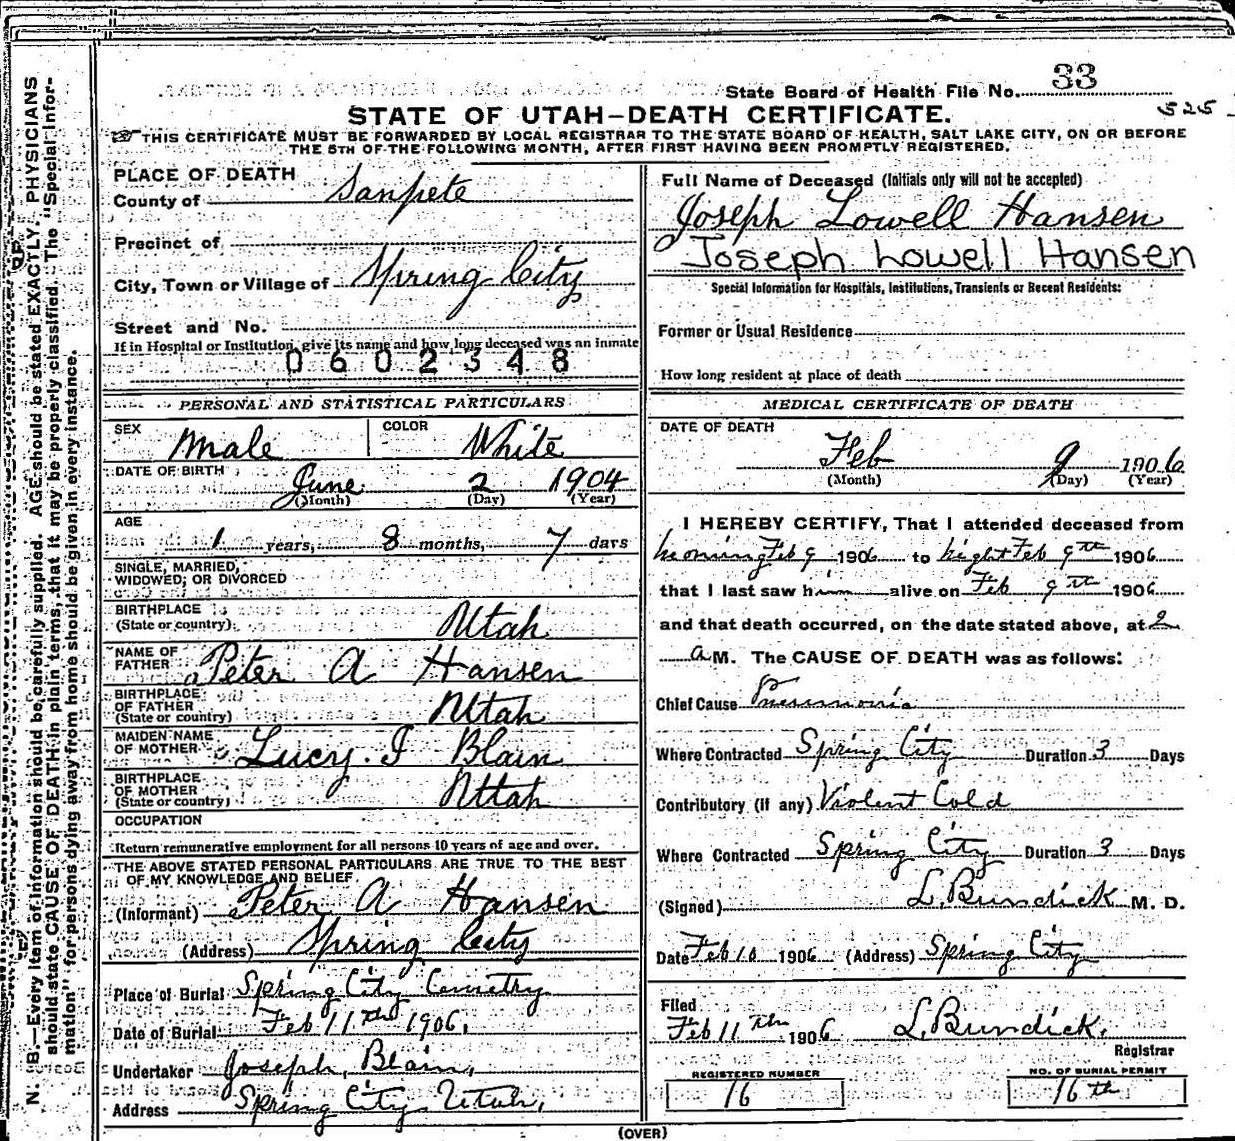 State Board of Health File No. 33
525
STATE OF UTAH—DEATH CERTIFICATE.
THIS CERTIFICATE MUST BE FORWARDED BY LOCAL REGISTRAR TO THE STATE BOARD OF HEALTH, SALT LAKE CITY, ON OR BEFORE
THE 5TH OF THE FOLLOWING MONTH, AFTER FIRST HAVING BEEN PROMPTLY REGISTERED.
PLACE OF DEATH
County of Sanpete
Precinct of
City, Town or Village of Spring City
Street and No.
If in Hospital or Institution, give its name and how long deceased was an inmate
0602348
PERSONAL AND STATISTICAL PARTICULARS
SEX Male COLOR White
DATE OF BIRTH June 2 1904
(Month) (Day) (Year)
AGE
1 years, 8 months, 7 days
SINGLE, MARRIED,
WIDOWED, OR DIVORCED
BIRTHPLACE
(State or country) Utah
NAME OF
FATHER Peter A Hansen
BIRTHPLACE
OF FATHER
(State or country) Utah
MAIDEN NAME
OF MOTHER Lucy I Blain
BIRTHPLACE
OF MOTHER
(State or country) Uttah
OCCUPATION
Return remunerative employment for all persons 10 years of age and over.
THE ABOVE STATED PERSONAL PARTICULARS ARE TRUE TO THE BEST
OF MY KNOWLEDGE AND BELIEF
(Informant) Peter A Hansen
(Address) Spring City
Place of Burial Spring City Cemetry
Date of Burial Feb 11th 1906.
Undertaker Joseph Blain,
Address Spring City Utah,
Full Name of Deceased (Initials only will not be accepted)
Joseph Lowell Hansen
Joseph Lowell Hansen
Special Information for Hospitals, Institutions, Transients or Recent Residents:
Former or Usual Residence
How long resident at place of death
MEDICAL CERTIFICATE OF DEATH
DATE OF DEATH
Feb 9 1906
(Month) (Day) (Year)
I HEREBY CERTIFY, That I attended deceased from
Feb 9 1906 to night Feb 9th 1906
that I last saw him alive on Feb 9th 1906
and that death occurred, on the date stated above, at 2
a M. The CAUSE OF DEATH was as follows:
Chief Cause Pneumonia
Where Contracted Spring City Duration 3 Days
Contributory (if any) Violent Cold
Where Contracted Spring City Duration 3 Days
(Signed) L. Bundick M. D.
Date Feb 10 1906 (Address) Spring City
Filed
Feb 11th 1906 L. Bundick.
Registrar
REGISTERED NUMBER
16
NO. OF BURIAL PERMIT
16th
(OVER)
N. B.—Every item of information should be carefully supplied. AGE should be stated EXACTLY. PHYSICIANS
should state CAUSE OF DEATH in plain terms, that it may be properly classified. The "Special Infor-
mation" for persons dying away from home should be given in every instance.